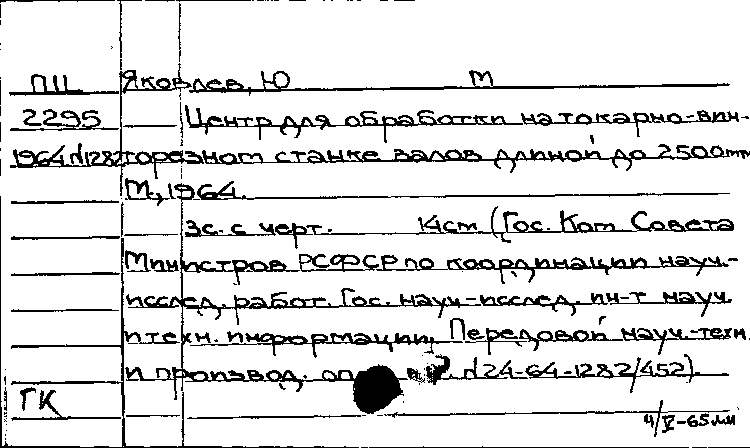 ПЦ Яковлев, Ю М
2295 Центр для обработки на токарно-вин-
1964 №1282 торезном станке валов длиной до 2500мм
М., 1964.
3с. с черт. (Гос. Ком Совета
Министров РСФСР по координации науч.-
исслед. работ. Гос. науч-исслед. ин-т науч.
и техн. информации. Передовой науч.-техн
и производ. №24-64-1282/452).
ГК
4/V-65